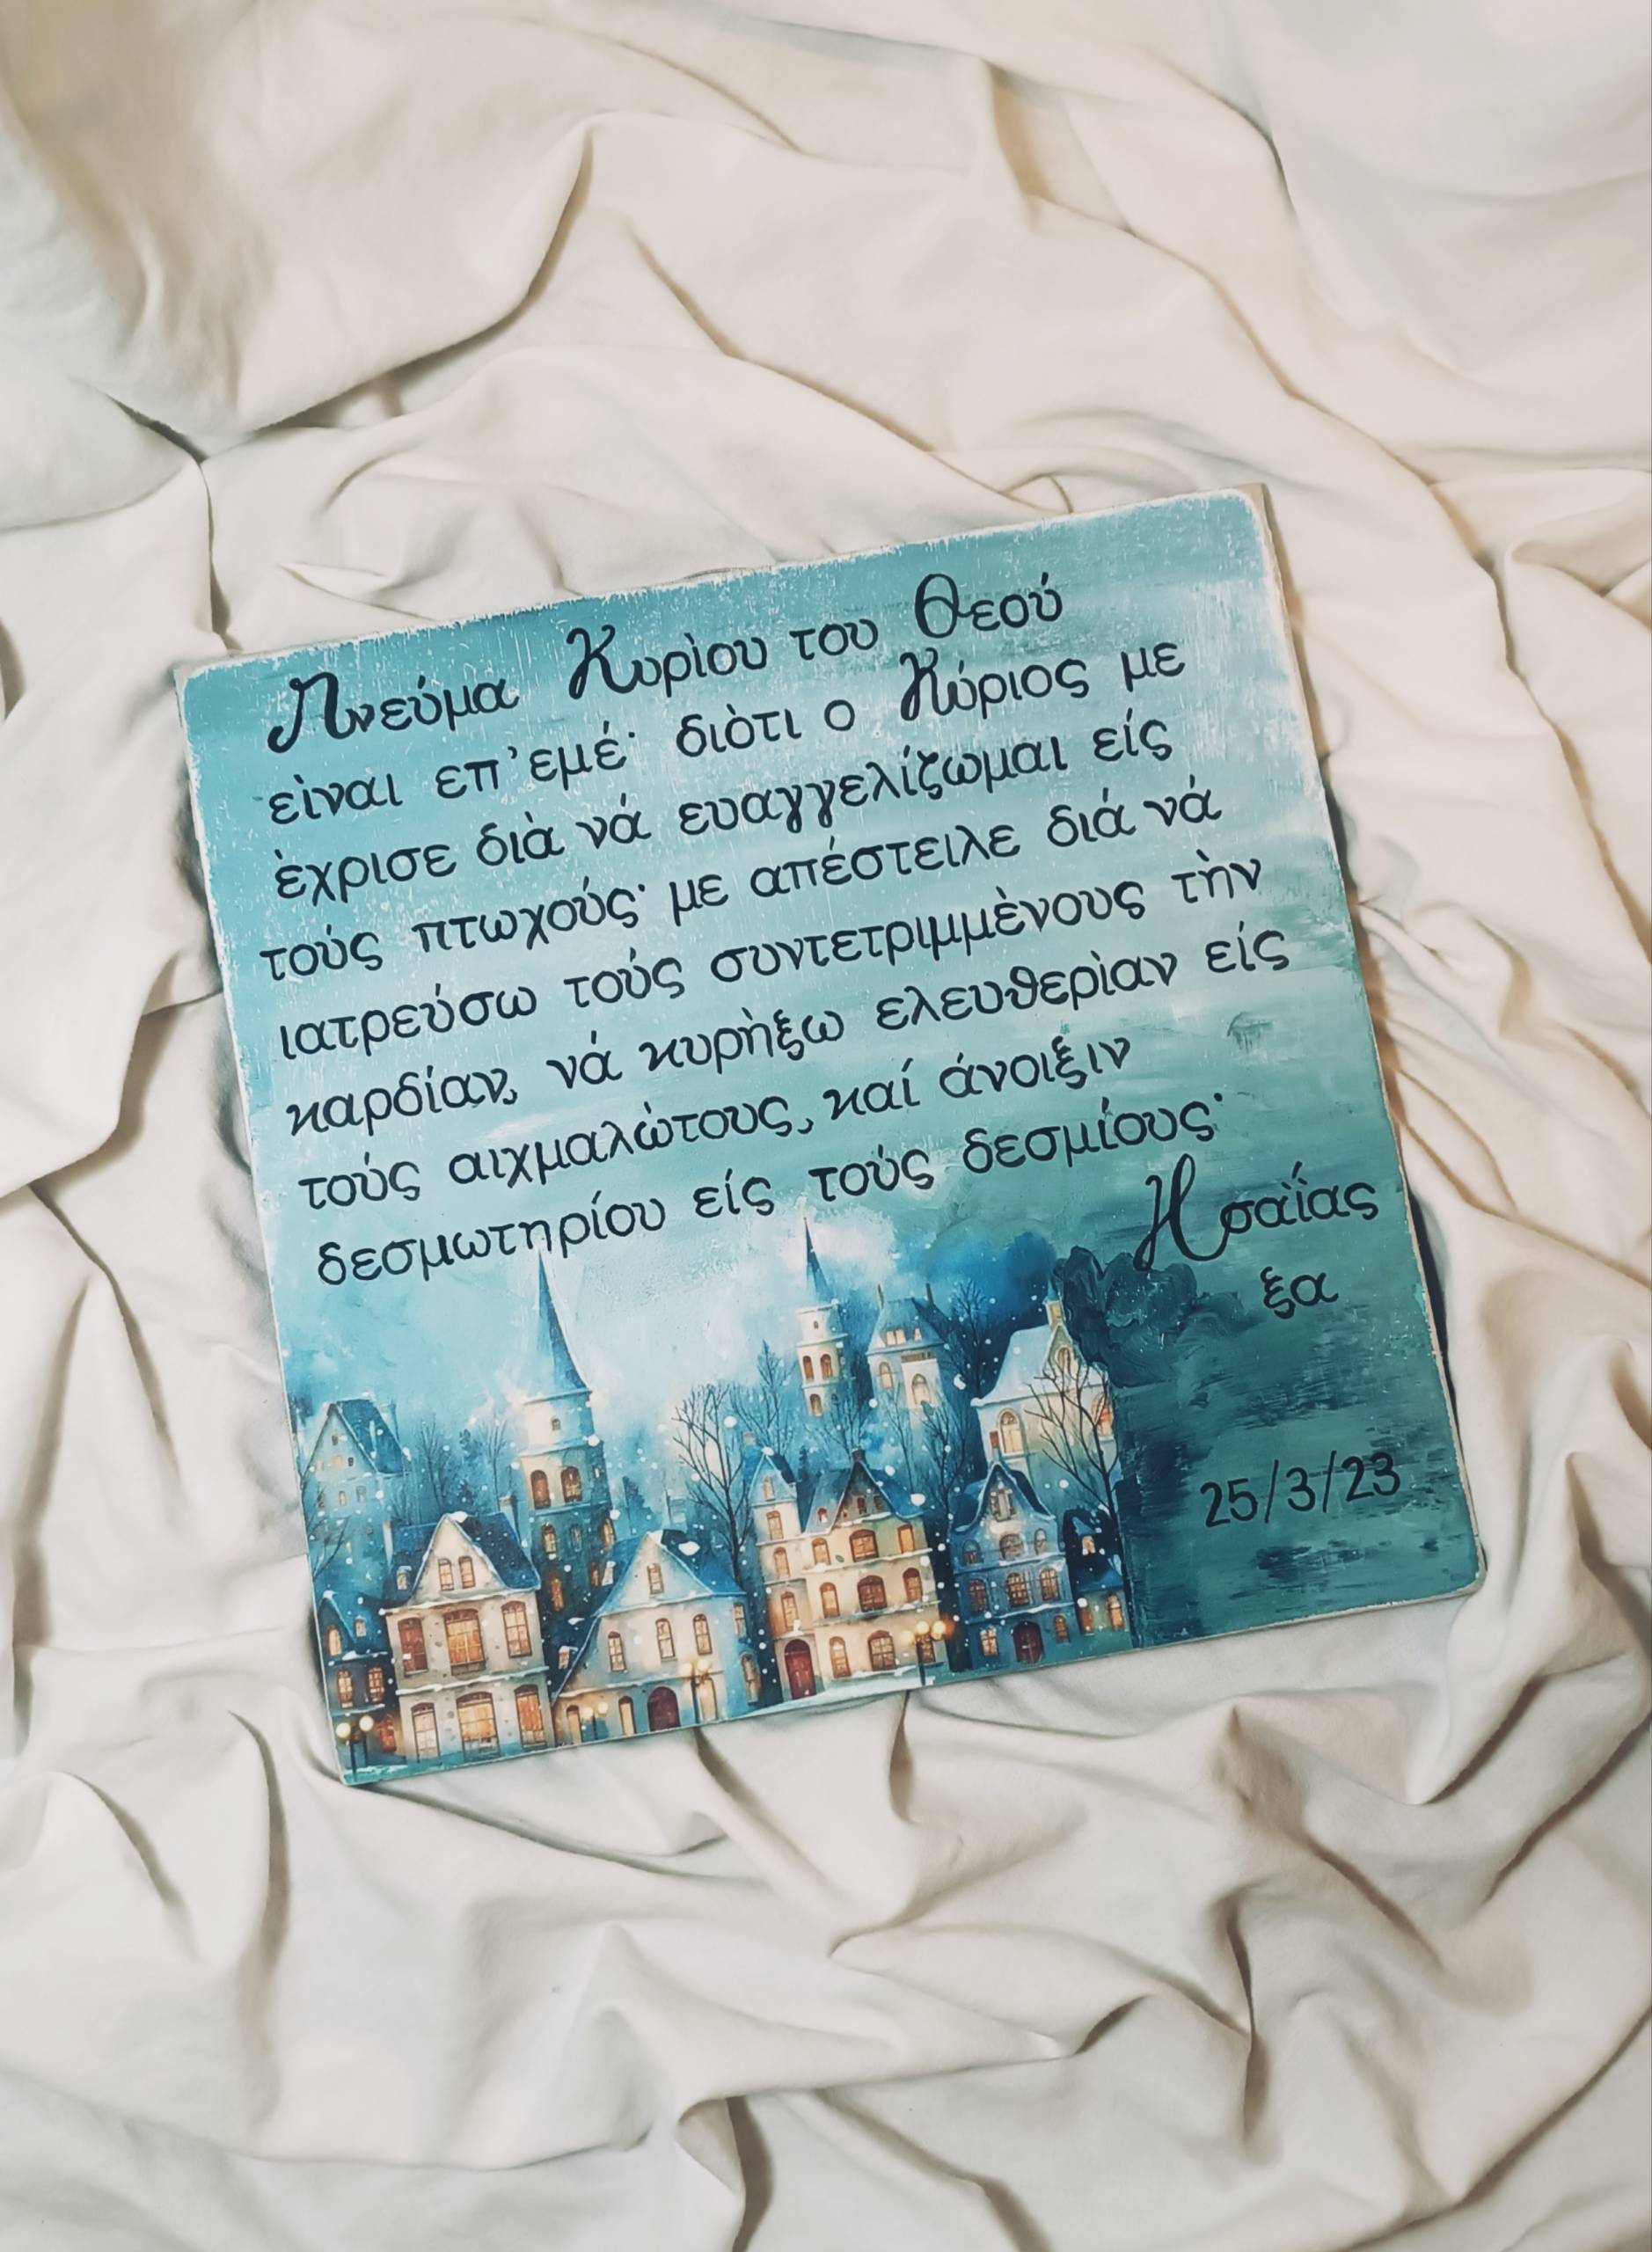 Πνεύμα Κυρὶου του Θεού
εὶναι επ'εμέ· διὸτι ο Κύριος με
ὲχρισε διὰ νά ευαγγελίζωμαι είς
τούς πτωχούς· με απέστειλε διά νά
ιατρεύσω τούς συντετριμμὲνους τὴν
καρδίαν, νά κυρὴξω ελευθερὶαν είς
τούς αιχμαλὼτους, καί άνοιξιν
δεσμωτηρίου είς τοὺς δεσμίους·
Ησαΐας
ξα
25/3/23